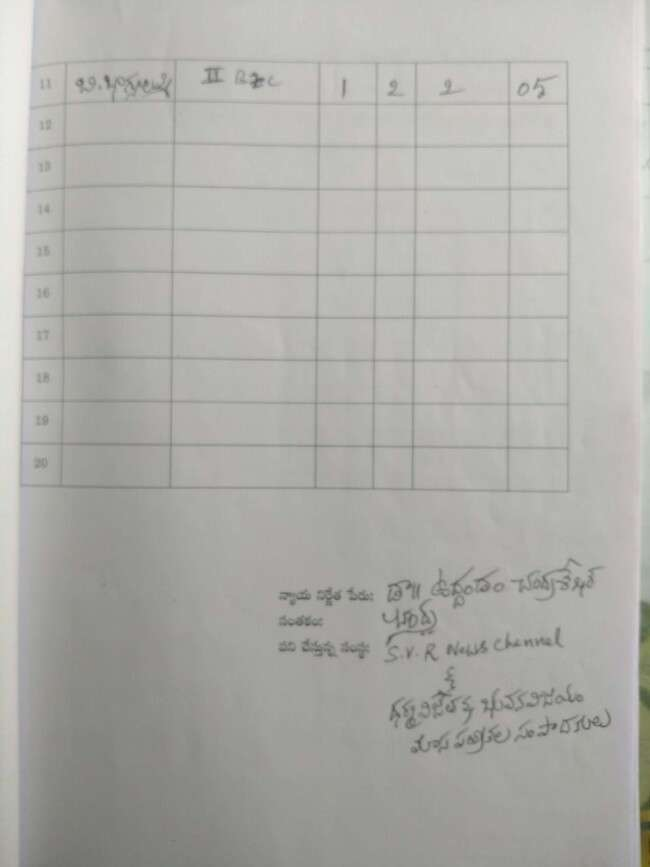 11 బి. భాగ్యలక్ష్మి II BZC 1 2 2 05
12
13
14
15
16
17
18
19
20
న్యాయ నిర్ణేత పేరు: డా॥ ఉద్దండం చంద్రశేఖర్
సంతకం:
పని చేస్తున్న సంస్థ: S.V.R News Channel
&
ధర్మవిజేత & భువనవిజయం
మాస పత్రికల సంపాదకులు